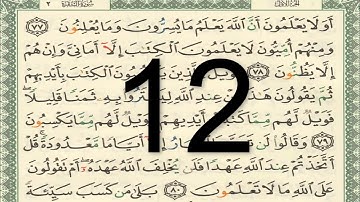 أَوَلَا يَعْلَمُونَ أَنَّ ٱللَّهَ يَعْلَمُ مَا يُسِرُّونَ وَمَا يُعْلِنُونَ ٧٧
وَمِنْهُمْ أُمِّيُّونَ لَا يَعْلَمُونَ ٱلْكِتَٰبَ إِلَّآ أَمَانِيَّ وَإِنْ هُمْ
إِلَّا يَظُنُّونَ ٧٨ فَوَيْلٌ لِّلَّذِينَ يَكْتُبُونَ ٱلْكِتَٰبَ بِأَيْدِيهِمْ
ثُمَّ يَقُولُونَ هَٰذَا مِنْ عِندِ ٱللَّهِ لِيَشْتَرُوا۟ بِهِۦ ثَمَنًا قَلِيلًا
فَوَيْلٌ لَّهُم مِّمَّا كَتَبَتْ أَيْدِيهِمْ وَوَيْلٌ لَّهُم مِّمَّا يَكْسِبُونَ
٧٩ وَقَالُوا۟ لَن تَمَسَّنَا ٱلنَّارُ إِلَّآ أَيَّامًا مَّعْدُودَةً قُلْ
أَتَّخَذْتُمْ عِندَ ٱللَّهِ عَهْدًا فَلَن يُخْلِفَ ٱللَّهُ عَهْدَهُۥٓ أَمْ تَقُولُونَ
عَلَى ٱللَّهِ مَا لَا تَعْلَمُونَ ٨٠ بَلَىٰ مَن كَسَبَ سَيِّئَةً
12